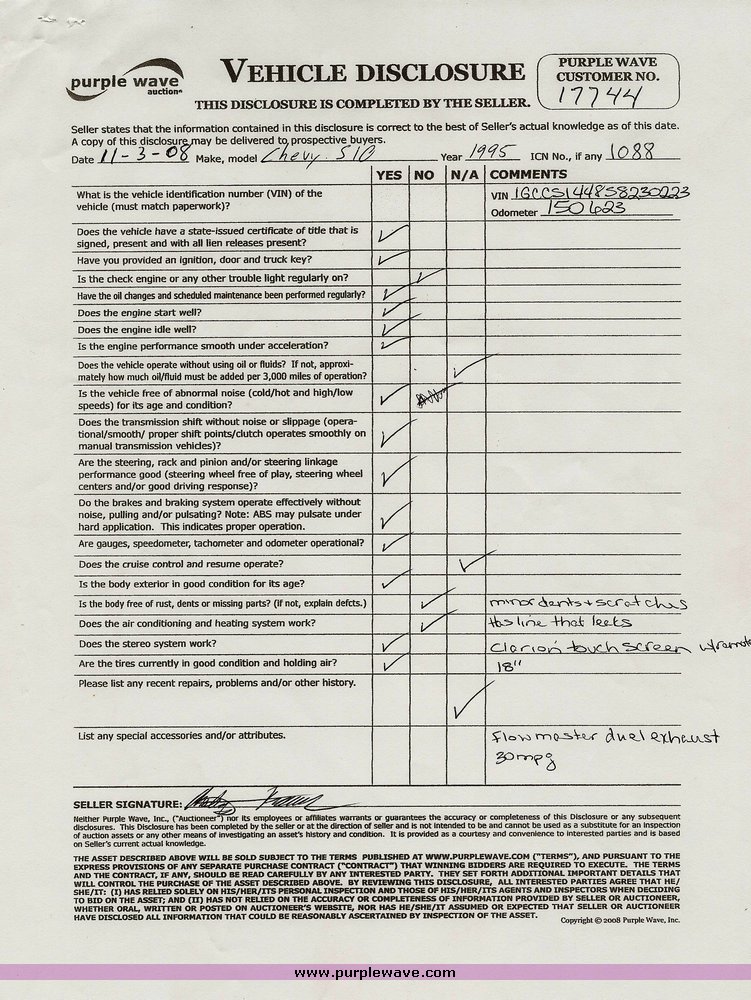 purple wave
auction®
VEHICLE DISCLOSURE
THIS DISCLOSURE IS COMPLETED BY THE SELLER.
PURPLE WAVE
CUSTOMER NO.
17744
Seller states that the information contained in this disclosure is correct to the best of Seller's actual knowledge as of this date.
A copy of this disclosure may be delivered to prospective buyers.
Date 11-3-08 Make, model Chevy S10 Year 1995 ICN No., if any 1088
YES NO N/A COMMENTS
What is the vehicle identification number (VIN) of the
vehicle (must match paperwork)?
VIN 1GCCS1448S8230223
Odometer 150623
Does the vehicle have a state-issued certificate of title that is
signed, present and with all lien releases present?
Have you provided an ignition, door and truck key?
Is the check engine or any other trouble light regularly on?
Have the oil changes and scheduled maintenance been performed regularly?
Does the engine start well?
Does the engine idle well?
Is the engine performance smooth under acceleration?
Does the vehicle operate without using oil or fluids? If not, approxi-
mately how much oil/fluid must be added per 3,000 miles of operation?
Is the vehicle free of abnormal noise (cold/hot and high/low
speeds) for its age and condition?
Does the transmission shift without noise or slippage (opera-
tional/smooth/ proper shift points/clutch operates smoothly on
manual transmission vehicles)?
Are the steering, rack and pinion and/or steering linkage
performance good (steering wheel free of play, steering wheel
centers and/or good driving response)?
Do the brakes and braking system operate effectively without
noise, pulling and/or pulsating? Note: ABS may pulsate under
hard application. This indicates proper operation.
Are gauges, speedometer, tachometer and odometer operational?
Does the cruise control and resume operate?
Is the body exterior in good condition for its age?
Is the body free of rust, dents or missing parts? (if not, explain defcts.) minor dents + scratches
Does the air conditioning and heating system work? Has line that leeks
Does the stereo system work? Clarion touch screen w/remote
Are the tires currently in good condition and holding air? 18"
Please list any recent repairs, problems and/or other history.
List any special accessories and/or attributes. Flowmaster duel exhaust
30 mpg
SELLER SIGNATURE:
Neither Purple Wave, Inc., ("Auctioneer") nor its employees or affiliates warrants or guarantees the accuracy or completeness of this Disclosure or any subsequent
disclosures. This Disclosure has been completed by the seller or at the direction of seller and is not intended to be and cannot be used as a substitute for an inspection
of auction assets or any other means of investigating an asset's history and condition. It is provided as a courtesy and convenience to interested parties and is based
on Seller's current actual knowledge.
THE ASSET DESCRIBED ABOVE WILL BE SOLD SUBJECT TO THE TERMS PUBLISHED AT WWW.PURPLEWAVE.COM ("TERMS"), AND PURSUANT TO THE
EXPRESS PROVISIONS OF ANY SEPARATE PURCHASE CONTRACT ("CONTRACT") THAT WINNING BIDDERS ARE REQUIRED TO EXECUTE. THE TERMS
AND THE CONTRACT, IF ANY, SHOULD BE READ CAREFULLY BY ANY INTERESTED PARTY. THEY SET FORTH ADDITIONAL IMPORTANT DETAILS THAT
WILL CONTROL THE PURCHASE OF THE ASSET DESCRIBED ABOVE. BY REVIEWING THIS DISCLOSURE, ALL INTERESTED PARTIES AGREE THAT HE/
SHE/IT: (I) HAS RELIED SOLELY ON HIS/HER/ITS PERSONAL INSPECTION AND THOSE OF HIS/HER/ITS AGENTS AND INSPECTORS WHEN DECIDING
TO BID ON THE ASSET; AND (II) HAS NOT RELIED ON THE ACCURACY OR COMPLETENESS OF INFORMATION PROVIDED BY SELLER OR AUCTIONEER,
WHETHER ORAL, WRITTEN OR POSTED ON AUCTIONEER'S WEBSITE, NOR HAS HE/SHE/IT ASSUMED OR EXPECTED THAT SELLER OR AUCTIONEER
HAVE DISCLOSED ALL INFORMATION THAT COULD BE REASONABLY ASCERTAINED BY INSPECTION OF THE ASSET.
Copyright © 2008 Purple Wave, Inc.
www.purplewave.com